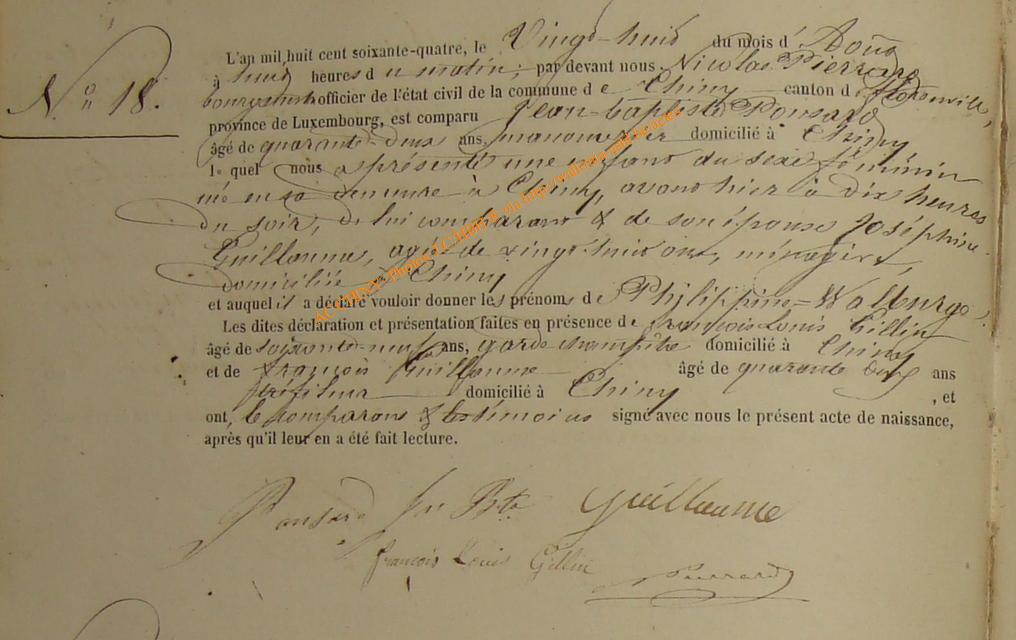 No 18.
L'an mil huit cent soixante-quatre, le Vingt-huit du mois d' Août
à huit heures du matin; par devant nous Nicolas Pierrard
bourgmestre officier de l'état civil de la commune de Chiny canton de Florenville,
province de Luxembourg, est comparu Jean-baptiste Ponsard
âgé de quarante-deux ans, manouvrier domicilié à Chiny
lequel nous a présenté une enfant du sexe féminin
né en sa demeure à Chiny, avant hier à dix heures
du soir, de lui comparant & de son épouse Joséphine
Guillaume, agée de vingt-huit ans, ménagère,
domiciliée à Chiny
et auquel il a déclaré vouloir donner les prénoms de Philippine-Walburge.
Les dites déclaration et présentation faites en présence de françois Louis Gillin
âgé de soixante-neuf ans, garde champêtre domicilié à Chiny
et de françois Guillaume âgé de quarante deux ans
domicilié à Chiny, et
ont, le comparant & les témoins signé avec nous le présent acte de naissance,
après qu'il leur en a été fait lecture.
Ponsard Jn Bte Guillaume
françois Louis Gillin Pierrard